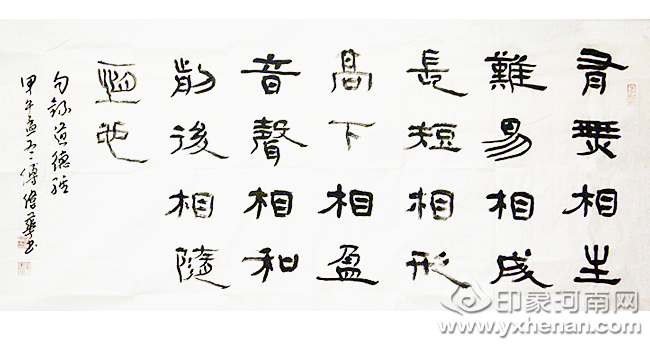 有無相生
難易相成
長短相形
高下相盈
音聲相和
前後相隨
恆也
句錄道德經
甲午孟冬傅偉華书
印象河南网
www.yxhenan.com